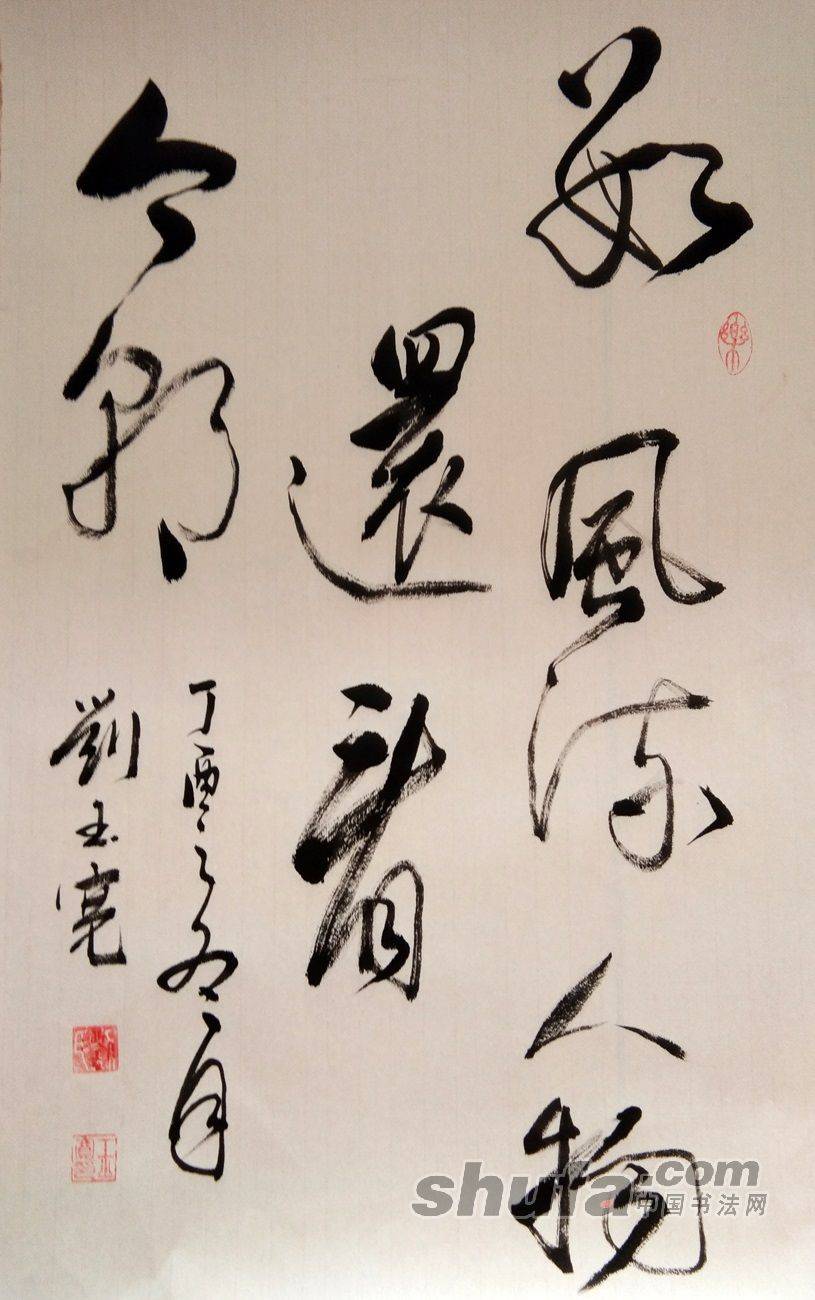 數風流人物
還看
今朝
丁酉之冬月
劉玉寬
shufa.com
中国书法网